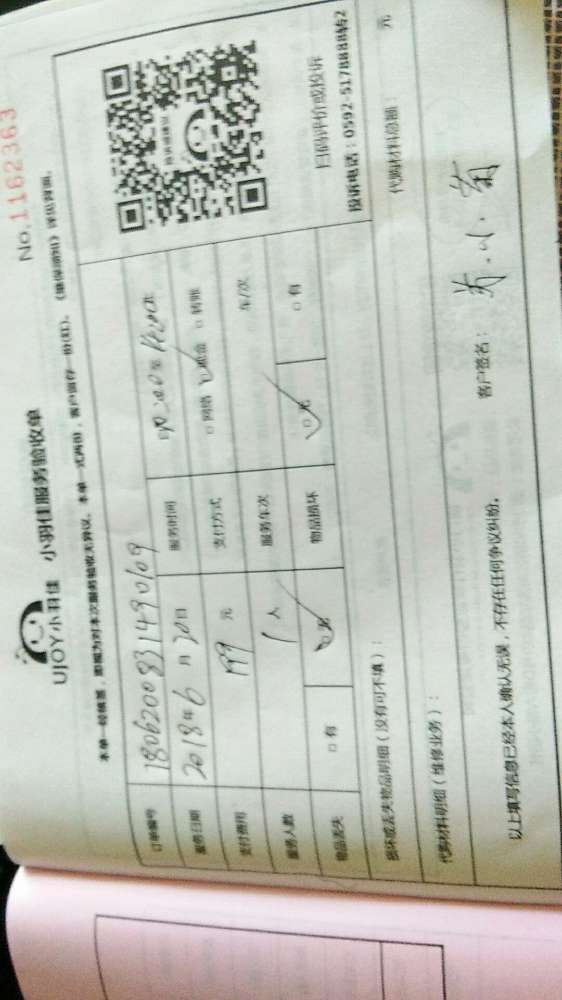 No.1162363
UJOY小羽佳 小羽佳服务验收单
本单一经核签,即视为对本次服务验收无异议。本单一式两份,客户留存一份(红)。《维保须知》详见背面。
订单编号 1806200831490109
服务日期 2018年6月20日 服务时间
支付费用 199元 支付方式 □网络 □现金 □转账
服务人数 1人 服务车次 车/次
物品丢失 □有 □无 物品损坏 □无 □有
扫码评价或投诉
投诉电话:0592-5178888转2
损坏或丢失物品明细(没有可不填):
代购材料明细(维修业务): 代购材料总额: 元
以上填写信息已经本人确认无误,不存在任何争议纠纷。 客户签名: